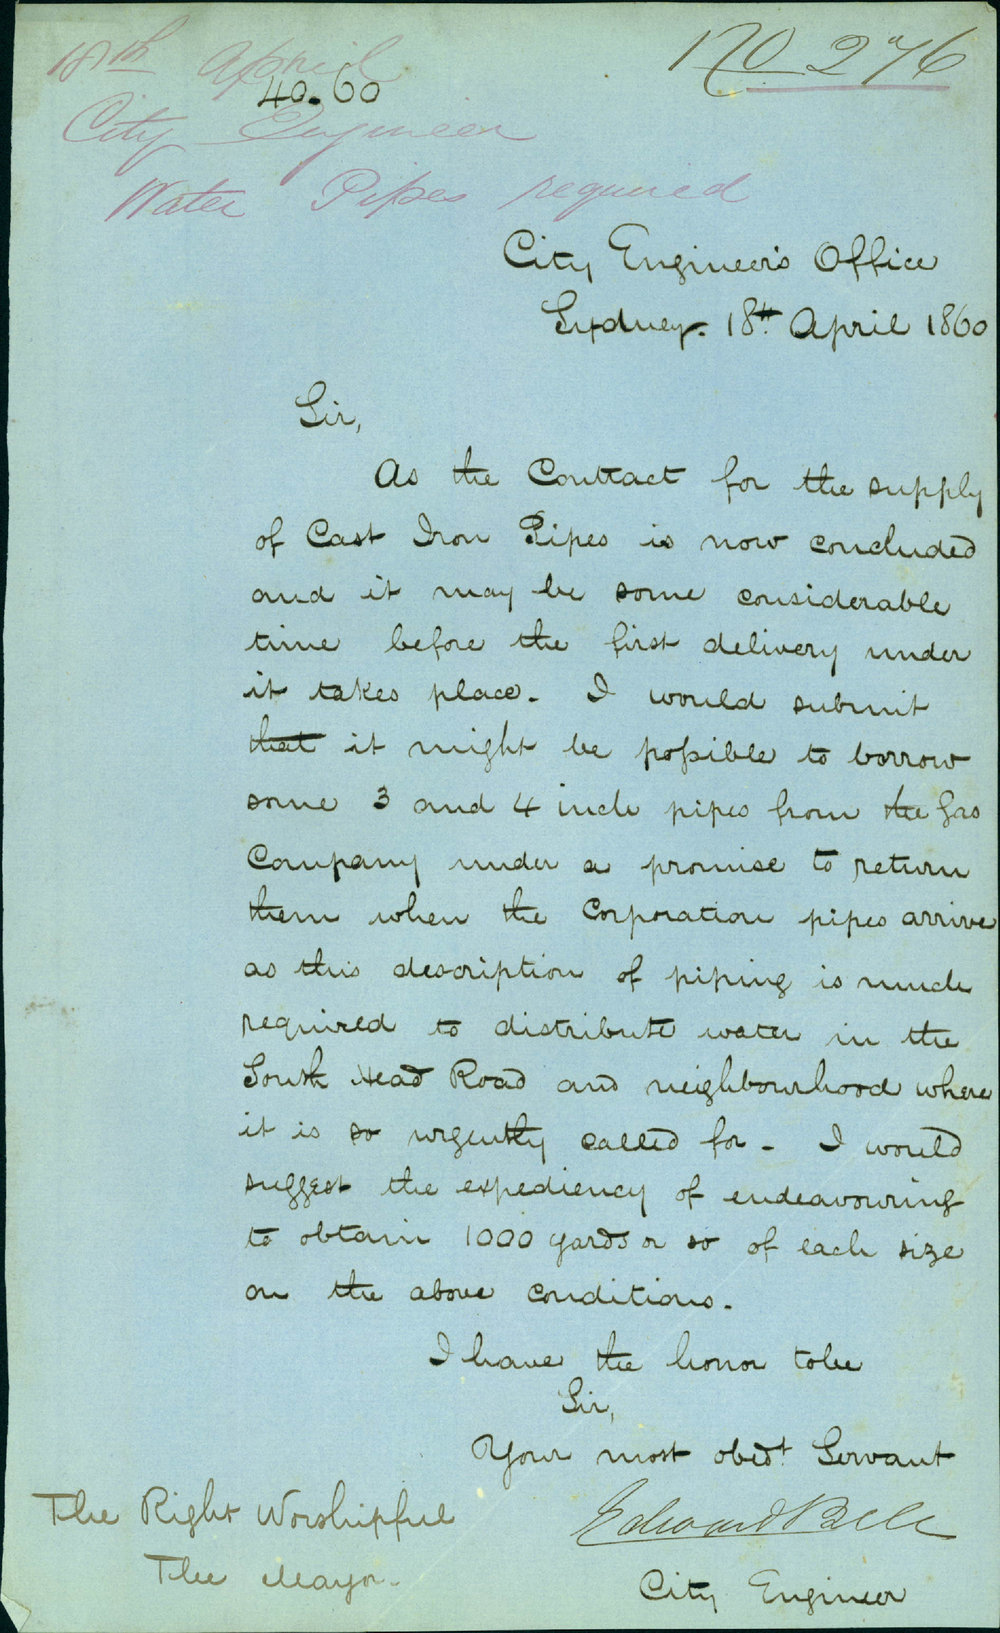 18th April
No 276
40.60
City Engineer
Water Pipes required
City Engineer's Office
Sydney. 18th April 1860
Sir,
As the Contract for the supply
of Cast Iron Pipes is now concluded
and it may be some considerable
time before the first delivery under
it takes place. I would submit
that it might be possible to borrow
some 3 and 4 inch pipes from the Gas
Company under a promise to return
them when the Corporation pipes arrive
as this description of piping is much
required to distribute water in the
South Head Road and neighbourhood where
it is so urgently called for - I would
suggest the expediency of endeavouring
to obtain 1000 yards or so of each size
on the above conditions.
I have the honor to be
Sir,
Your most obedt Servant
Edward Bell
City Engineer
The Right Worshipful
The Mayor.